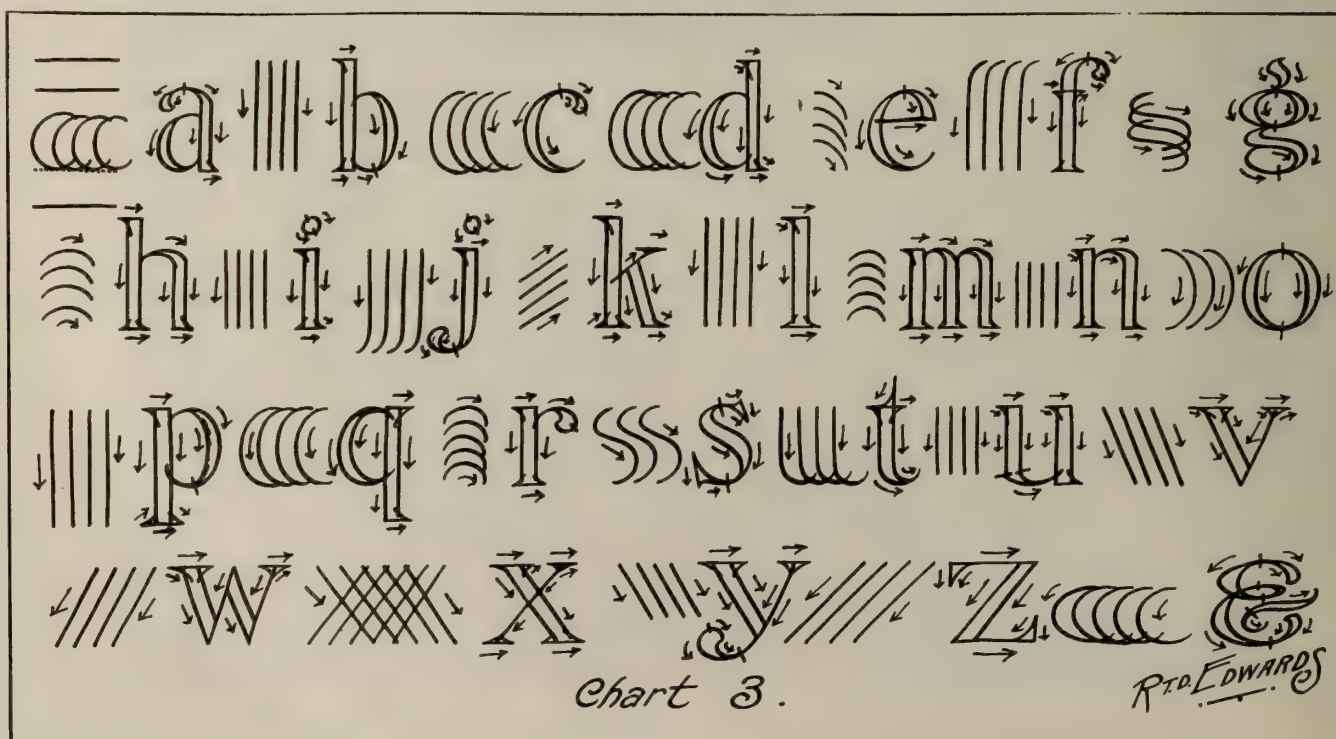 a b c d e f g
h i j k l m n o
p q r s t u v
w x y z &
Chart 3.
RT.D. EDWARDS